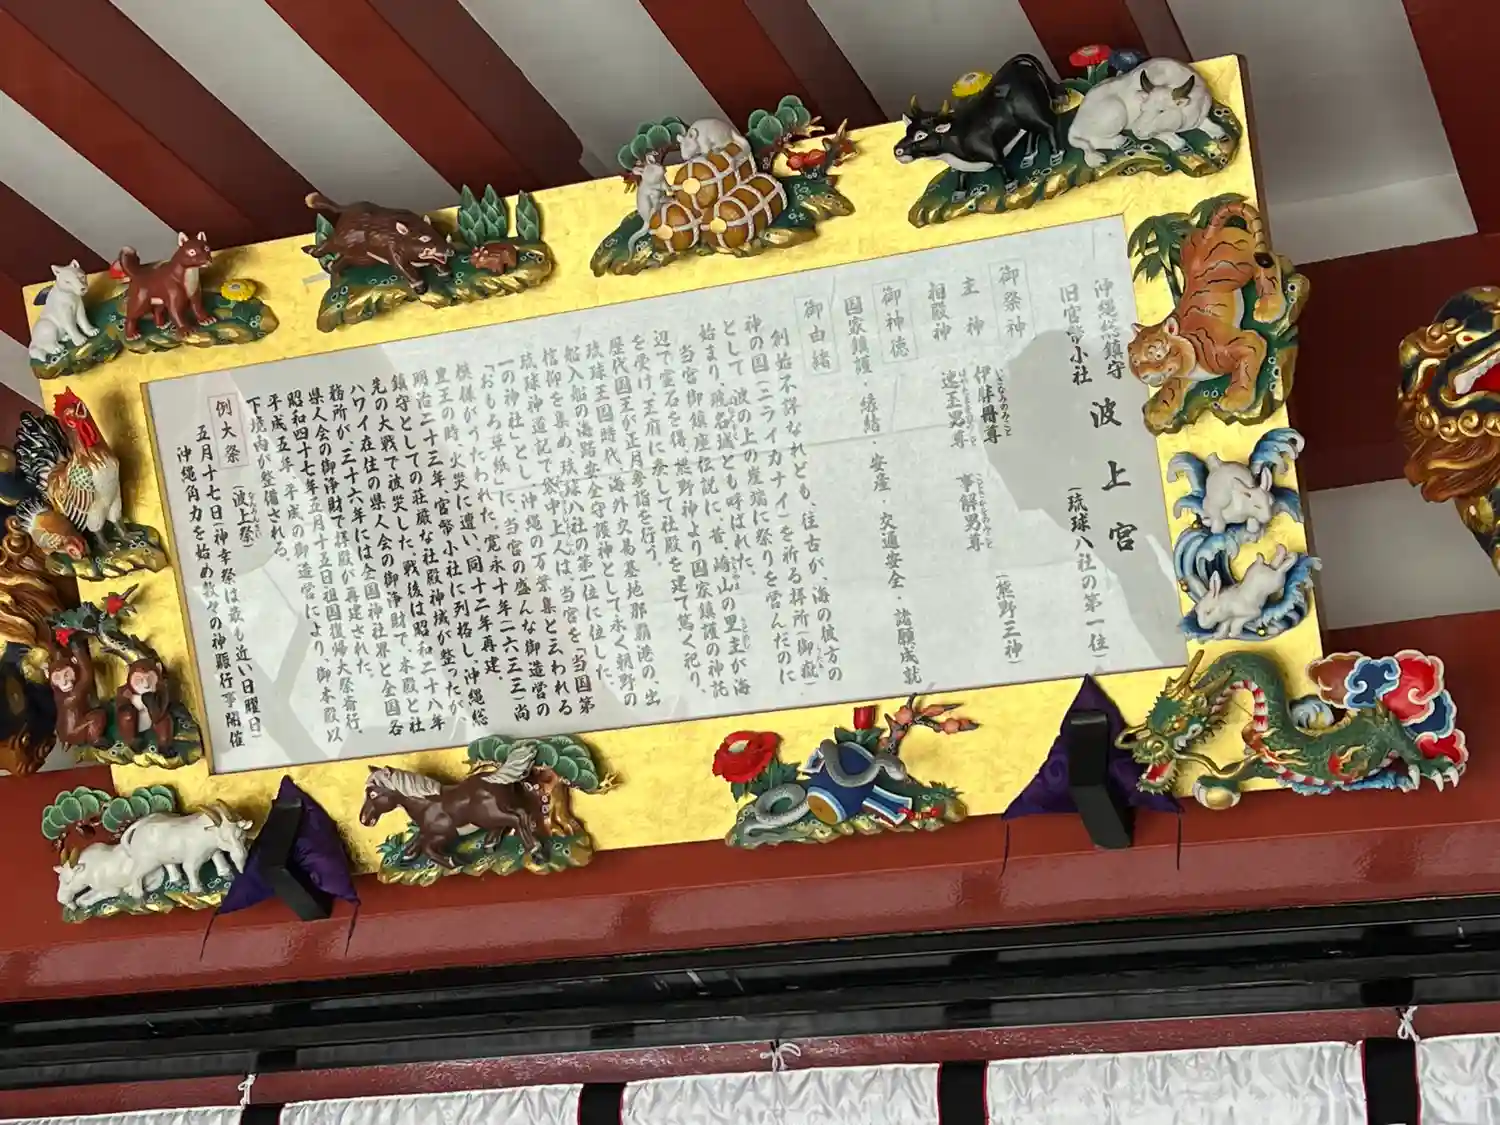 沖縄総鎮守
旧官幣小社
波上宮
(琉球八社の第一位)
御祭神
主神
伊弉冊尊
いざなみのみこと
事解男尊
(熊野三神)
相殿神
速玉男尊
御神徳
国家鎮護・縁結・安産・交通安全・諸願成就
御由緒
創始不詳なれども、往古が、海の彼方の
神の国(ニライカナイ)を祈る拝所(御嶽)
として、波の上の崖端に祭りを営んだのに
始まり、波名城とも呼ばれた。
当宮御鎮座伝説に、昔、崎山の里主が海
辺で霊石を得、熊野神より国家鎮護の神託
を受け、王府に奏して社殿を建て篤く祀り、
歴代国王が正月参詣を行う。
琉球王国時代、海外交易基地那覇港の、出
船入船の海路安全守護神として永く朝野の
信仰を集め、琉球八社の第一位に位した。
琉球神道記で袋中上人は、当宮を「当国第
一の神社」とし、沖縄の万葉集と云われる
「おもろ草紙」に、当宮の盛んな御造営の
模様がうたわれた。寛永十年(一六三三)尚
豊王の時、火災に遭い、同十二年再建、
明治二十三年、官幣小社に列格し、沖縄総
鎮守としての荘厳な社殿神域が整ったが、
先の大戦で被災した。戦後は昭和二十八年
ハワイ在住の県人会の御浄財で、本殿と社
務所が、三十六年には全国神社界と全国各
県人会の御浄財で拝殿が再建された。
昭和四十七年五月十五日祖国復帰大祭斎行、
平成五年、平成の御造営により、御本殿以
下境内が整備される。
例大祭
(波上祭)
五月十七日(神幸祭は最も近い日曜日)
沖縄角力を始め数々の神賑行事開催